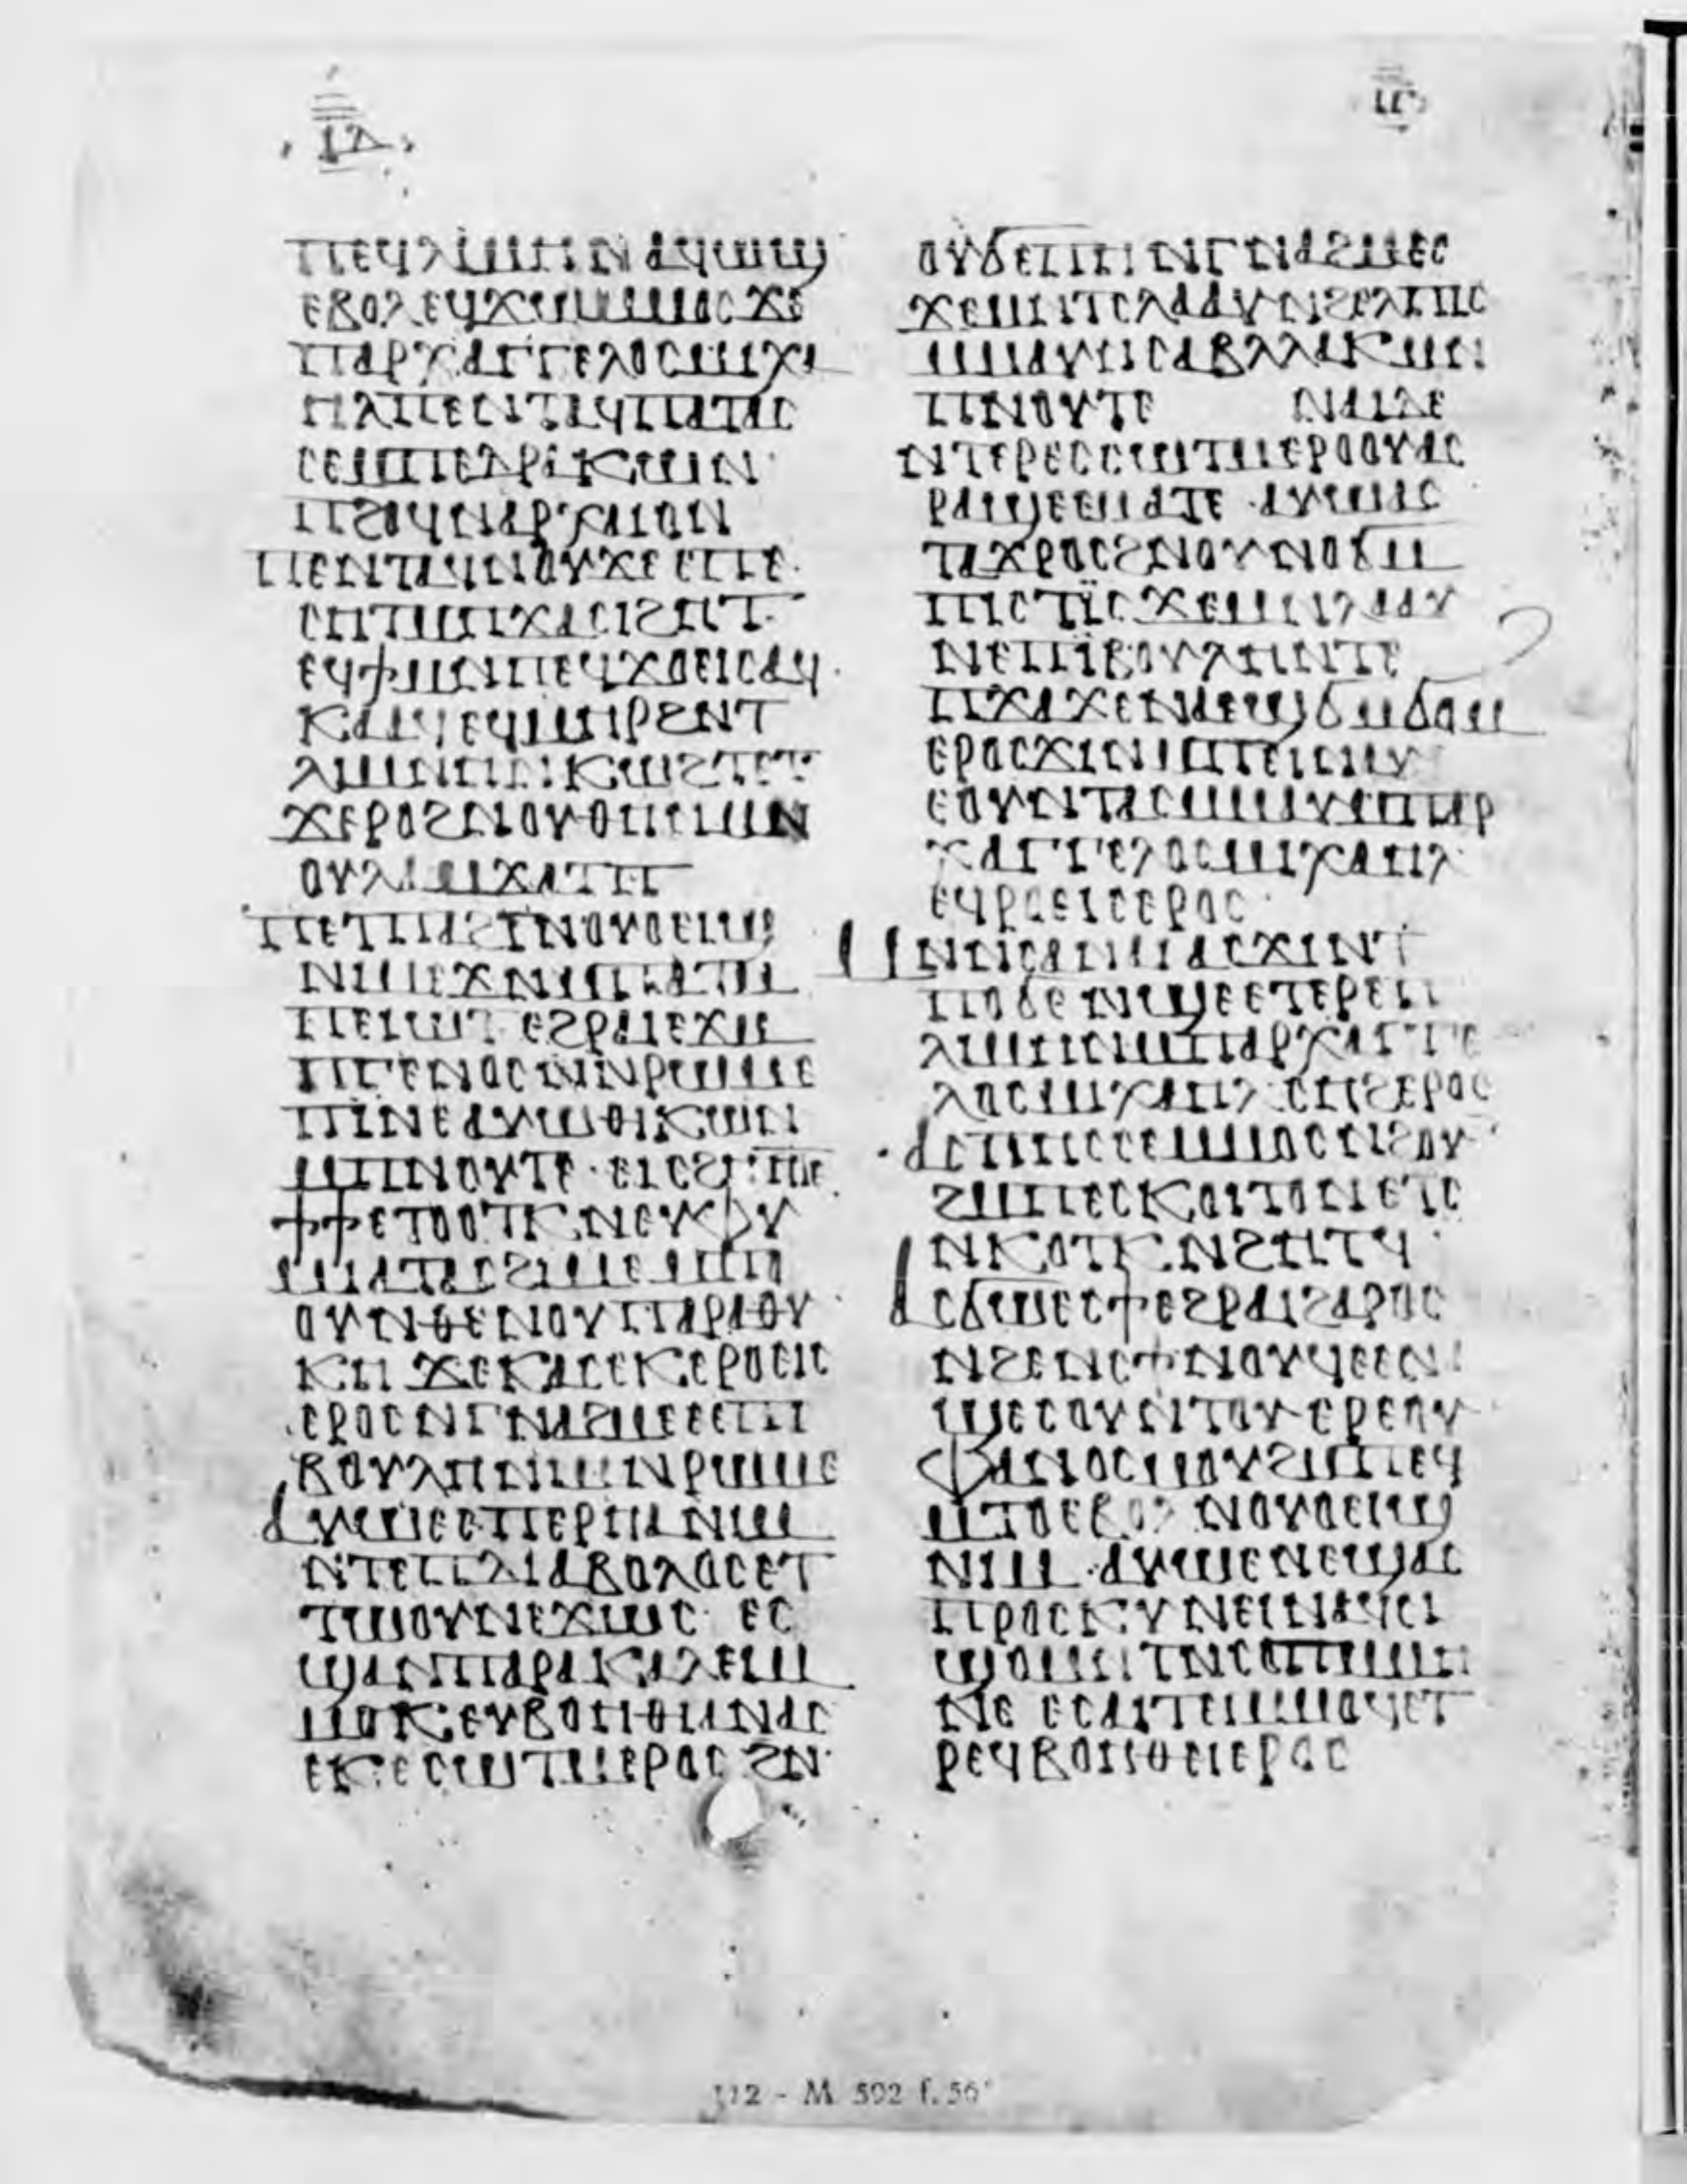 ⲓⲇ
ⲡⲉϥⲗⲓⲙⲏⲛ ⲁϥⲱϣ
ⲉⲃⲟⲗ ⲉϥϫⲱⲙⲙⲟⲥ ϫⲉ
ⲡⲁⲣⲭⲁⲅⲅⲉⲗⲟⲥⲙⲓⲭⲁ
ⲏⲗⲡⲉⲛⲧⲁϥⲡⲁⲧⲁⲥ
ⲥⲉⲙⲡⲉⲇⲣⲁⲕⲱⲛ
ⲡϩⲟϥⲛⲁⲣⲭⲁⲓⲟⲛ
ⲡⲉⲛⲧⲁϥⲛⲟⲩϫⲉ ⲉⲡⲉ
ⲥⲏⲧⲙⲡϫⲁⲥⲓϩⲏⲧ
ⲉϥϯⲙⲛⲡⲉϥϫⲟⲉⲓⲥⲁϥ
ⲕⲁⲁϥ ⲉϥⲙⲏⲣϩⲛⲧ
ⲗⲓⲙⲛⲏⲛⲕⲱϩⲧⲉⲧ
ϫⲉⲣⲟϩⲛⲟⲩⲑⲏⲛⲙⲛ
ⲟⲩⲗⲁⲙϫⲁⲧⲡ
ⲡⲉⲧⲡⲁϩⲧⲛⲟⲩⲟⲉⲓϣ
ⲛⲓⲙ ⲉϫⲛⲙⲡⲁⲧⲙ
ⲡⲉⲓⲱⲧ ⲉϩⲣⲁⲓⲉϫⲙ
ⲡⲅⲉⲛⲟⲥⲛⲛⲣⲱⲙⲉ
ⲡⲓⲛⲉⲁⲩⲱⲑⲓⲕⲱⲛ
ⲙⲡⲛⲟⲩⲧⲉ ⲉⲓⲥϩⲏⲏⲧⲉ
ϯϯⲉⲧⲟⲟⲧⲕ ⲛⲉⲩⲫⲩ
ⲙⲓⲁⲧⲁⲥϩⲓⲙⲉⲙⲙⲟ
ⲟⲩⲛⲑⲉⲛⲟⲩⲡⲁⲣⲁⲑⲩ
ⲕⲏ ϫⲉⲕⲁⲥⲉⲕⲉⲣⲟⲉⲓⲥ
ⲉⲣⲟⲥ ⲛⲅⲛⲁϩⲙⲉⲥⲉⲧⲉⲡⲓ
ⲃⲟⲩⲗⲏⲛⲓⲙⲛⲣⲱⲙⲉ
ⲁⲩⲱⲛⲉⲥⲡⲉⲣⲙⲁ ⲛⲓⲙ
ⲛⲧⲉⲡⲇⲓⲁⲃⲟⲗⲟⲥⲉⲧ
ⲧⲱⲟⲩⲛⲉϫⲱⲥ ⲉⲥ
ϣⲁⲛⲡⲁⲣⲁⲕⲁⲗⲉⲓⲙ
ⲙⲟⲕ ⲉⲩⲃⲟⲏⲑⲓⲁ ⲛⲁⲥ
ⲉⲕⲉⲥⲱⲧⲙⲉⲣⲟⲥ ϩⲛ
ⲟⲩϭⲉⲡⲏ ⲛⲅⲛⲁϩⲙⲉⲥ
ϫⲉⲙⲛⲧⲥⲗⲁⲁⲩ ⲛϩⲉⲗⲡⲓⲥ
ⲙⲙⲁⲩⲛⲥⲁⲃⲗⲗⲁⲕ ⲙⲛ
ⲡⲛⲟⲩⲧⲉ ⲛⲁⲓⲇⲉ
ⲛⲧⲉⲣⲉⲥⲥⲱⲧⲙⲉⲣⲟⲟⲩⲁⲥ
ⲣⲁϣⲉⲉⲙⲁⲧⲉ ⲁⲩⲱⲁⲥ
ⲧⲁϫⲣⲟⲥϩⲛⲟⲩⲛⲟϭⲙ
ⲡⲓⲥⲧⲓⲥ ϫⲉⲙⲛⲗⲁⲁⲩ
ⲛⲉⲡⲓⲃⲟⲩⲗⲏⲛⲧⲉ
ⲡϫⲁϫⲉⲛⲁⲉϣϭⲙϭⲟⲙ
ⲉⲣⲟⲥϫⲓⲛⲙⲡⲉⲓⲛⲁⲩ
ⲉⲟⲩⲛⲧⲁⲥⲙⲙⲁⲩⲙⲡⲁⲣ
ⲭⲁⲅⲅⲉⲗⲟⲥⲙⲓⲭⲁⲏⲗ
ⲉϥⲣⲟⲉⲓⲥⲉⲣⲟⲥ
ⲙⲛⲛⲥⲁⲛⲁⲓ ⲁⲥϫⲓⲛⲧ
ⲡⲟϭⲉ ⲛϣⲉⲉⲧⲉⲣⲉⲑⲓ
ⲕⲱⲛⲙⲡⲁⲣⲭⲁⲅⲅⲉ
ⲗⲟⲥⲙⲓⲭⲁⲏⲗ ⲥⲏϩⲉⲣⲟⲥ
ⲁⲥⲡⲏⲥⲥⲉⲙⲙⲟⲥⲛϩⲟⲩ
ϩⲙⲡⲉⲥⲕⲟⲓⲧⲱⲛⲉⲧⲥ
ⲛⲕⲟⲧⲕ ⲛϩⲏⲧϥ
ⲁⲥϭⲱⲉⲥϯⲉϩⲣⲁⲓϩⲁⲣⲟⲥ
ⲛϩⲉⲛⲥϯⲛⲟⲩϥⲉⲉⲛⲁ
ϣⲉⲥⲟⲩⲛⲧⲟⲩ ⲉⲣⲉⲟⲩ
ⲫⲁⲛⲟⲥⲙⲟⲩϩⲙⲡⲉϥ
ⲙⲧⲟⲉⲃⲟⲗ ⲛⲟⲩⲟⲉⲓϣ
ⲛⲓⲙ ⲁⲩⲱⲉⲛⲉϣⲁⲥ
ⲡⲣⲟⲥⲕⲩⲛⲉⲓⲛⲁϥⲛ
ϣⲟⲙⲛⲧⲛⲥⲟⲡⲙⲙⲏ
ⲛⲉ ⲉⲥⲁⲓⲧⲉⲓⲙⲙⲟϥⲉⲧ
ⲣⲉϥⲃⲟⲏⲑⲉⲓⲉⲣⲟⲥ
112 - M 592 f. 56